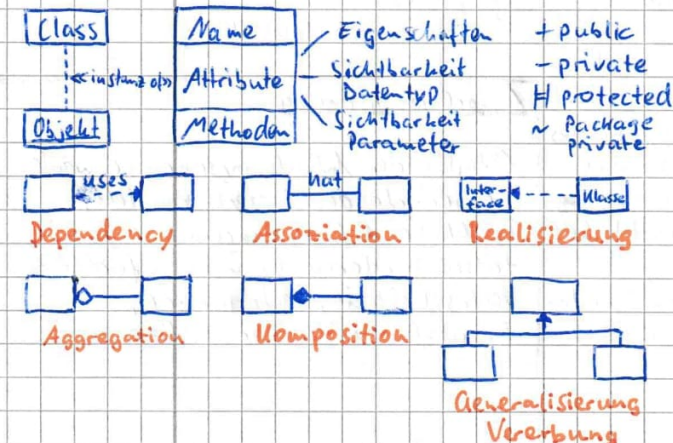 Class
Name
Attribute
Methoden
Eigenschaften
Sichtbarkeit
Datentyp
Sichtbarkeit
Parameter
+ public
- private
# protected
~ Package
private
<<instanz of>>
Objekt
uses
Dependency
hat
Assoziation
Inter-
face
Klasse
Realisierung
Aggregation
Komposition
Generalisierung
Vererbung